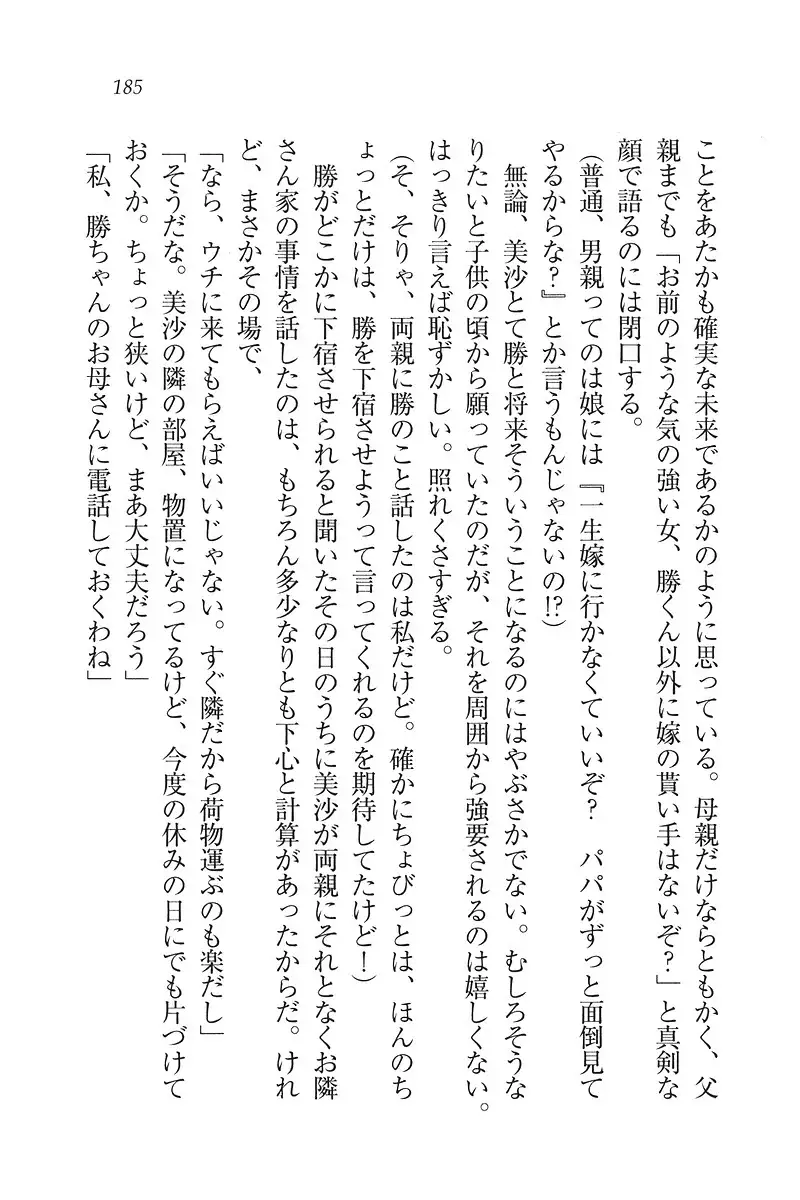 185
ことをあたかも確実な未来であるかのように思っている。母親だけならともかく、父
親までも「お前のような気の強い女、勝くん以外に嫁の貰い手はないぞ？」と真剣な
顔で語るのには閉口する。
（普通、男親ってのは娘には『一生嫁に行かなくていいぞ？　パパがずっと面倒見て
やるからな？』とか言うもんじゃないの!?）
　無論、美沙とて勝と将来そういうことになるのにはやぶさかでない。むしろそうな
りたいと子供の頃から願っていたのだが、それを周囲から強要されるのは嬉しくない。
はっきり言えば恥ずかしい。照れくさすぎる。
（そ、そりゃ、両親に勝のこと話したのは私だけど。確かにちょびっとは、ほんのち
ょっとだけは、勝を下宿させようって言ってくれるのを期待してたけど！）
　勝がどこかに下宿させられると聞いたその日のうちに美沙が両親にそれとなくお隣
さん家の事情を話したのは、もちろん多少なりとも下心と計算があったからだ。けれ
ど、まさかその場で、
「なら、ウチに来てもらえばいいじゃない。すぐ隣だから荷物運ぶのも楽だし」
「そうだな。美沙の隣の部屋、物置になってるけど、今度の休みの日にでも片づけて
おくか。ちょっと狭いけど、まあ大丈夫だろう」
「私、勝ちゃんのお母さんに電話しておくわね」